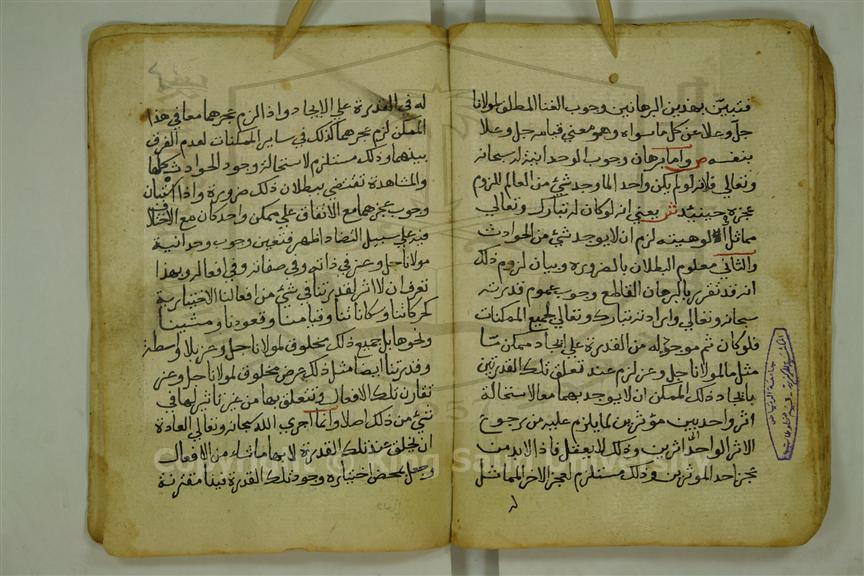 فتبين بهذين البرهانين وجوب الغنا المطلق لمولانا
جل وعلا عن كل ما سواه وهو معني قيامه جل وعلا
بنفسه ص واما برهان وجوب الوحدانية له سبحانه
وتعالي فلانه لو لم يكن واحدا لما وجد شئ من العالم للزوم
عجزه حينيذ ش يعني انه لو كان له تبارك وتعالي
مماثل في الوهيته لزم ان لا يوجد شئ من الحوادث
والثاني معلوم البطلان بالضرورة وبيان لزوم ذلك
انه قد تقرر بالبرهان القاطع وجوب عموم قدرته
سبحانه وتعالي وارادته تبارك وتعالي لجميع الممكنات
فلو كان ثم موجود له من القدرة علي ايجاد ممكن ما
مثل ما لمولانا جل وعز لزم عند تعلق تلك القدرتين
بايجاد ذلك الممكن ان لا يوجد بهما معا لاستحالة
اثر واحد بين مؤثرين لما يلزم عليه من رجوع
الاثر الواحد اثرين وذلك لا يعقل فاذا لا بد من
عجز احد الموثرين وذلك مستلزم لعجز الاخر المماثل
له
له في القدرة علي الايجاد واذا لزم عجزهما معا في هذا
الممكن لزم عجزهما كذلك في ساير الممكنات لعدم الفرق
بينهما وذلك مستلزم لاستحالة وجود الحوادث كلها
والمشاهدة تقتضي ببطلان ذلك ضرورة واذا استبان
وجوب عجزهما مع الاتفاق علي ممكن واحد كان مع الاختلاف
فيه علي سبيل التضاد اظهر فتعين وجوب وحدانية
مولانا جل وعز في ذاته وفي صفاته وفي افعاله وبهذا
تعرف ان لا اثر لقدرتنا في شئ من افعالنا الاختيارية
كحركاتنا وسكاناتنا وقيامنا وقعودنا ومشينا
ونحوها بل جميع ذلك مخلوق لمولانا جل وعز بلا واسطة
وقدرتنا ايضا مثل ذلك عرض مخلوق لمولانا جل وعز
تقارن تلك الافعال وتتعلق بها من غير تاثير لها في
شئ من ذلك اصلا وانما اجري الله سبحانه وتعالي العادة
ان يخلق عند تلك القدرة لا بها ما شاء من الافعال
وجعل بمحض اختياره وجود تلك القدرة فينا مقترنة
Copyright © King Saud University